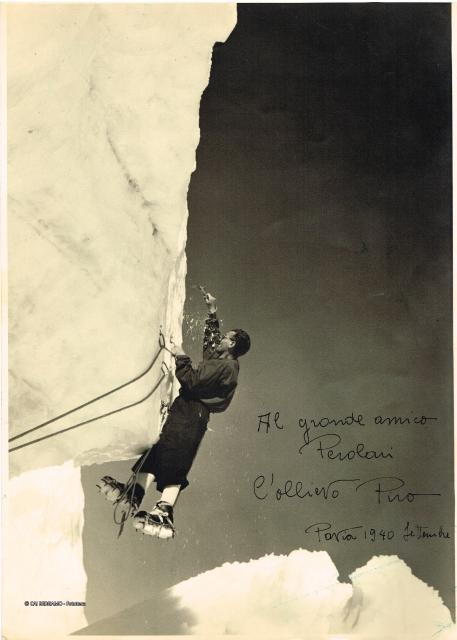 Al grande amico
Perolari
L'allievo Piro
1940 Settembre
© CAI BERGAMO - Fototeca